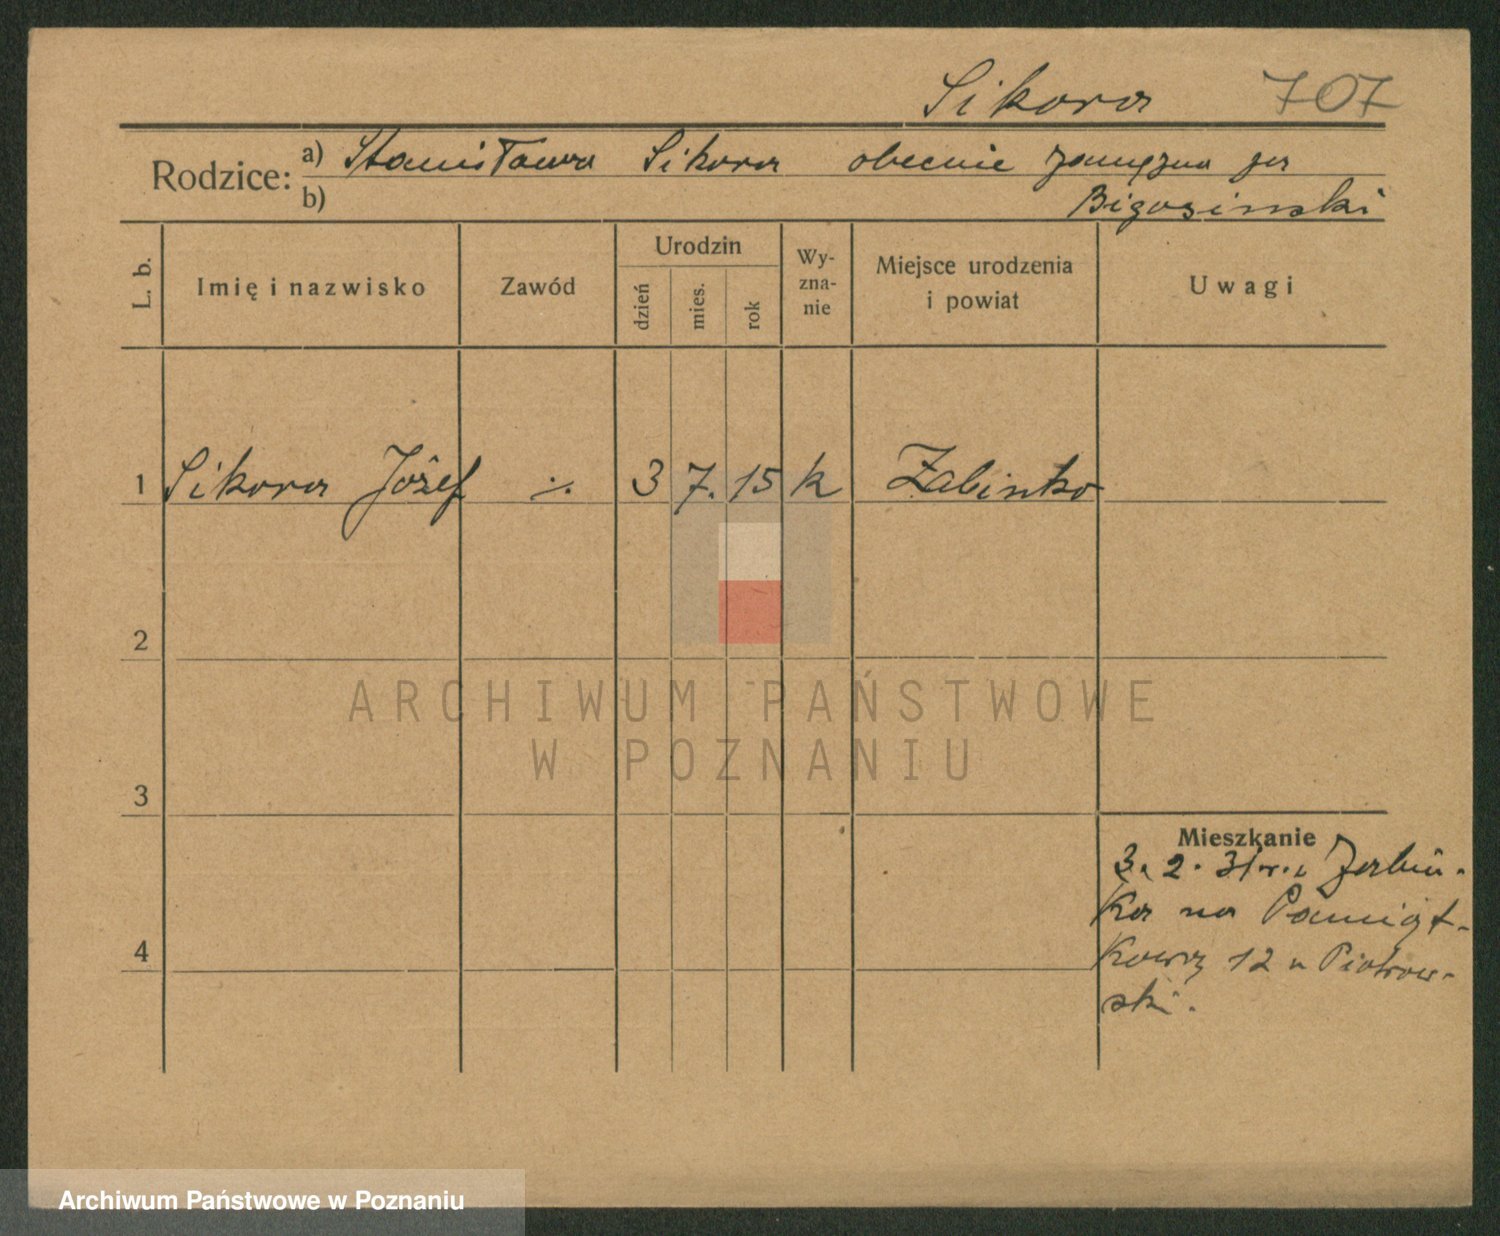 Sikora 707
Rodzice: a) Stanisława Sikora obecnie zamężna za
b) Bigosinski
L. b.
Imię i nazwisko
Zawód
Urodzin
dzień
mies.
rok
Wy-
zna-
nie
Miejsce urodzenia
i powiat
Uwagi
1 Sikora Józef ·/. 3 7. 15 k Żabinko
2
3
4
Mieszkanie
3. 2. 31 r. z Żabin-
ka na Pamiąt-
kową 12 u Piotrow-
ski.
ARCHIWUM PAŃSTWOWE
W POZNANIU
Archiwum Państwowe w Poznaniu